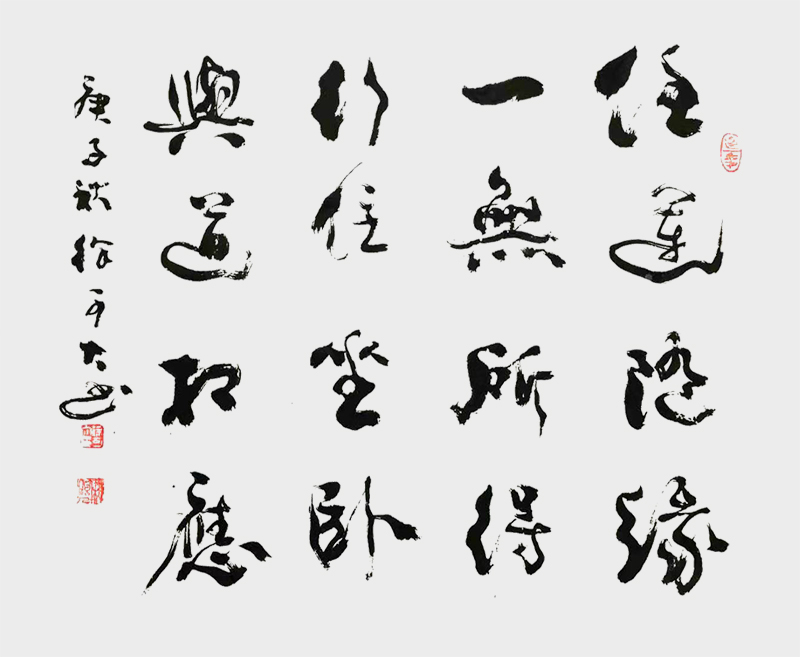 任運隨緣
一無所得
行住坐卧
與道相應
庚子秋徐大书